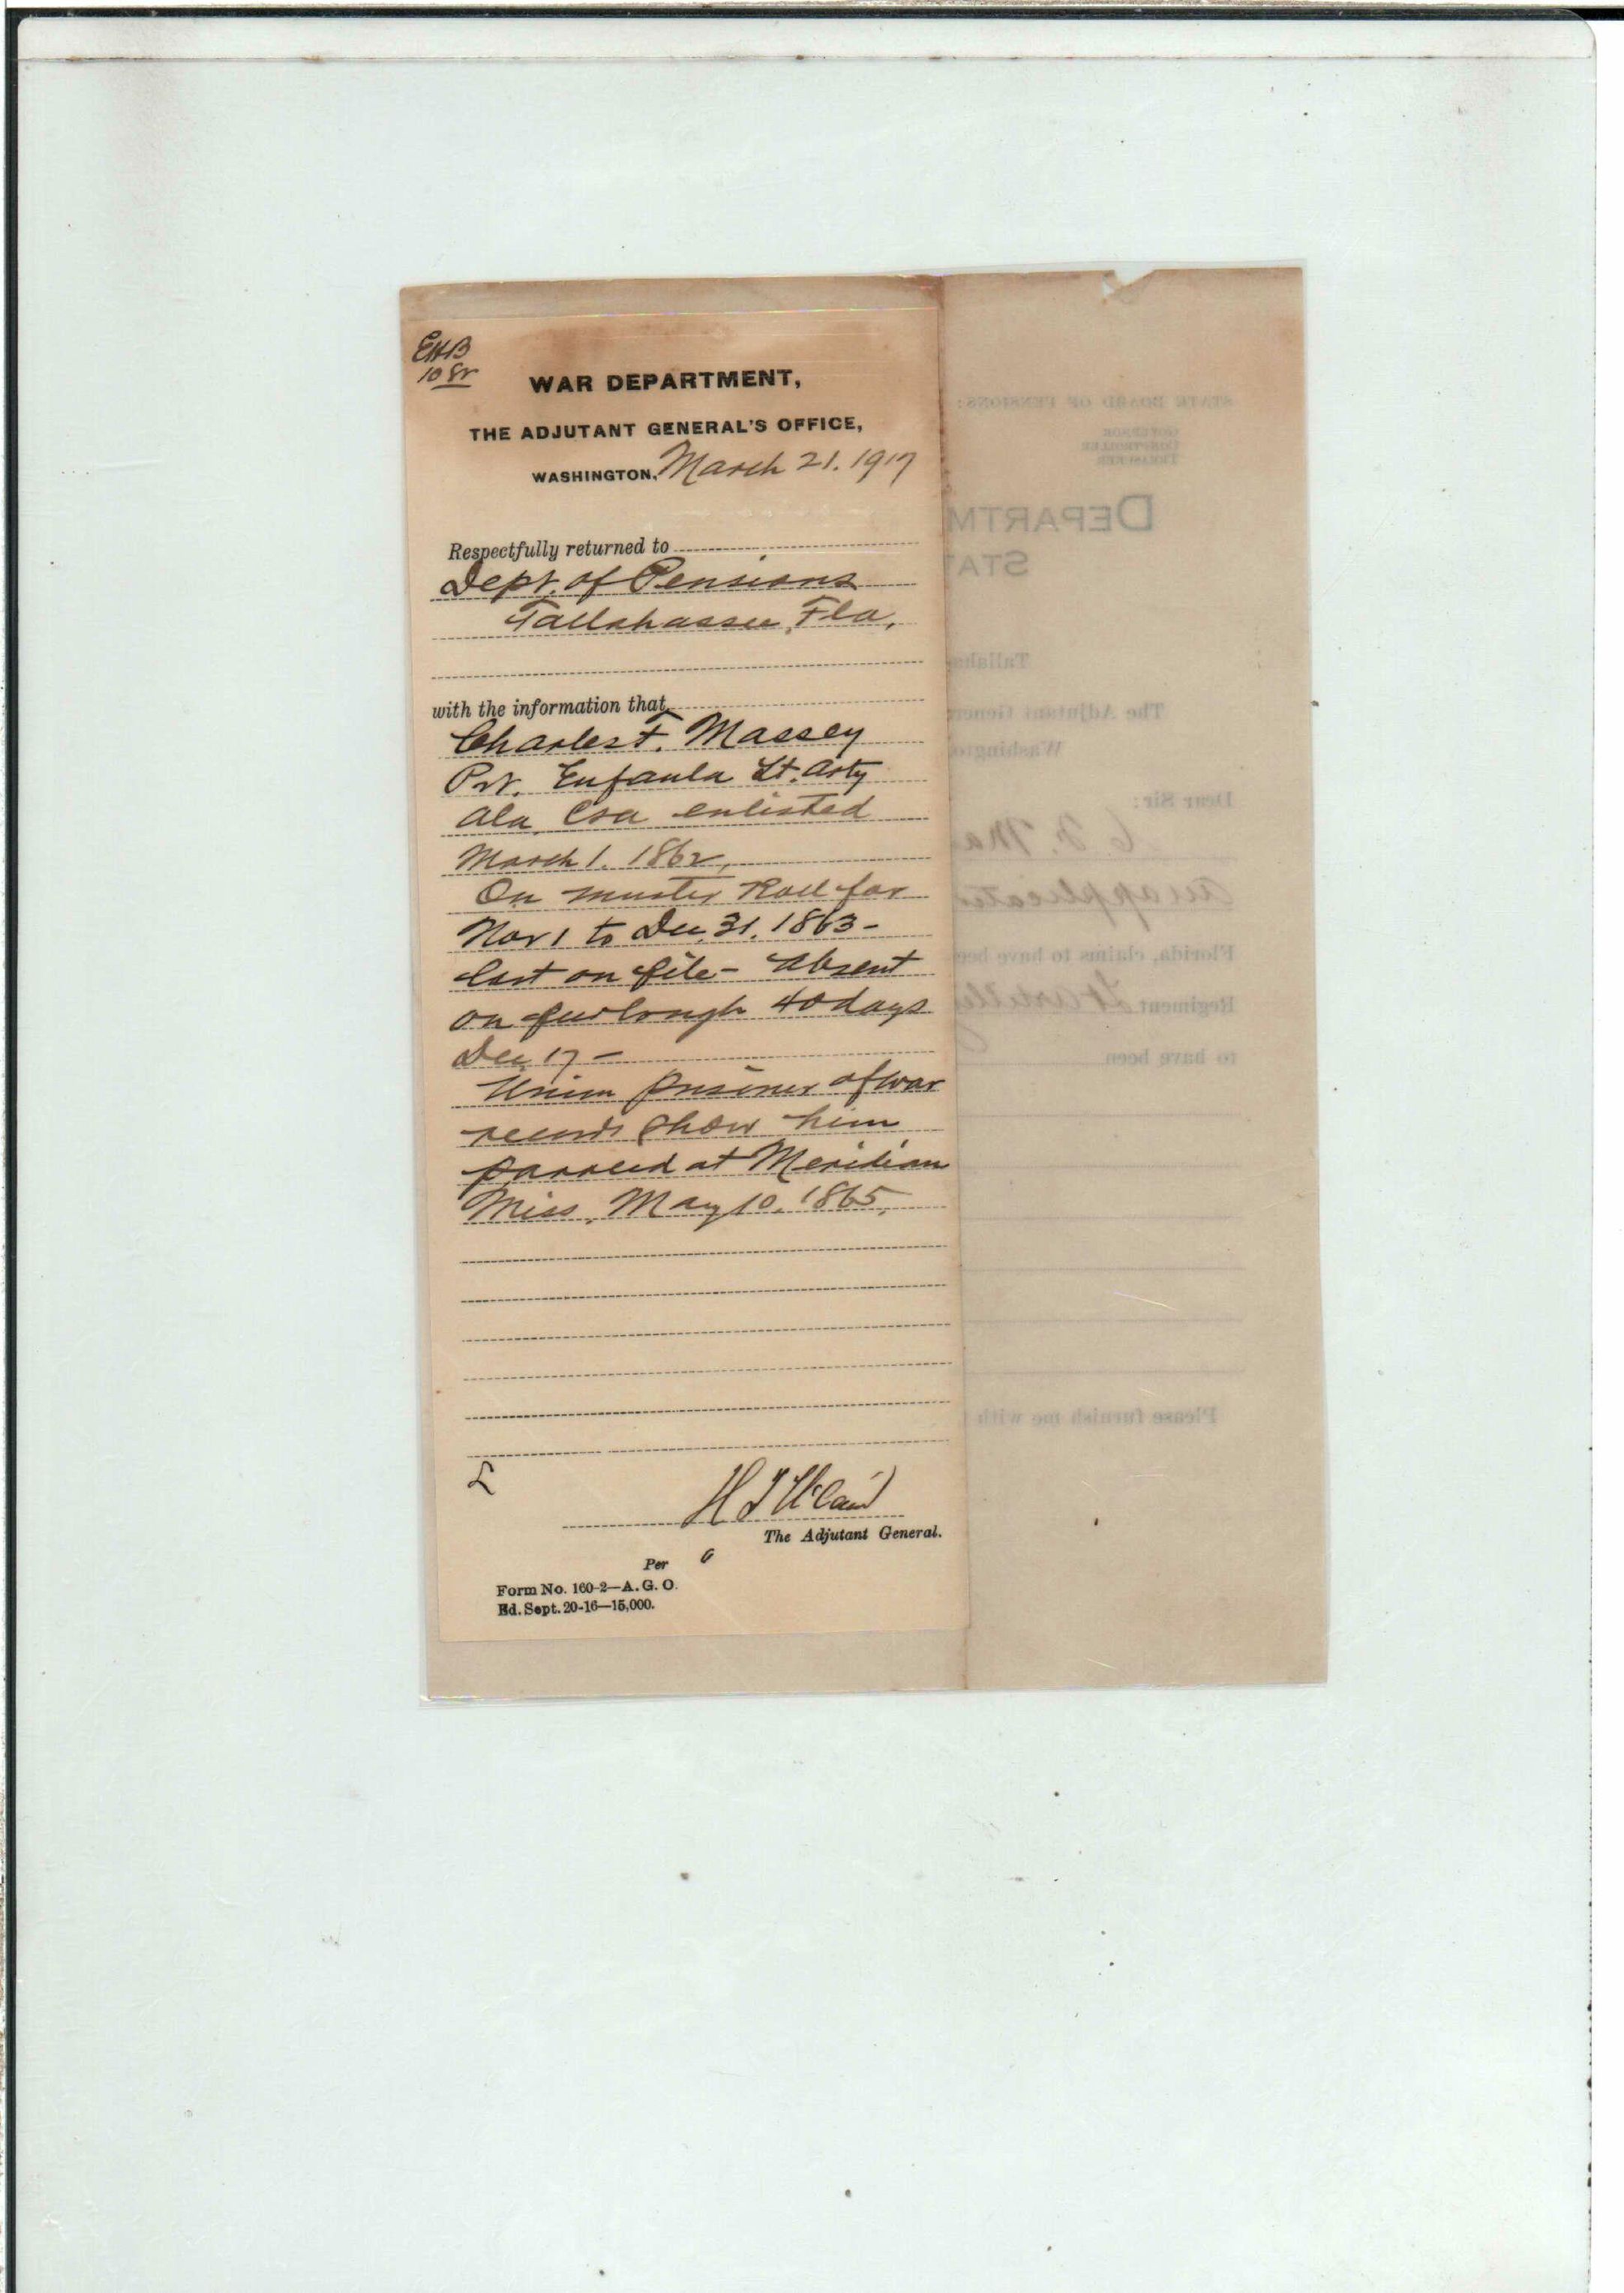 EHB
10 Sr
WAR DEPARTMENT,
THE ADJUTANT GENERAL'S OFFICE,
WASHINGTON, March 21. 1917
Respectfully returned to
Dept. of Pensions
Tallahassee, Fla.
with the information that
Charles F. Massey
Pvt. Eufaula Lt. Arty
Ala. Csa enlisted
March 1. 1862,
On muster Roll for
Nov 1 to Dec. 31. 1863 -
last on file - absent
on furlough 40 days
Dec. 17 -
Union prisoner of war
records show him
paroled at Meridian
Miss. May 10. 1865.
The Adjutant General.
Per
Form No. 160-2—A. G. O.
Ed. Sept. 20-16—15,000.
STATE BOARD OF PENSIONS:
GOVERNOR
COMPTROLLER
TREASURER
DEPARTM
STAT
Tallaha
The Adjutant Gener
Washingto
Dear Sir:
C. F. Ma
an applicatio
Florida, claims to have bee
Regiment Lt artille
to have been
Please furnish me with